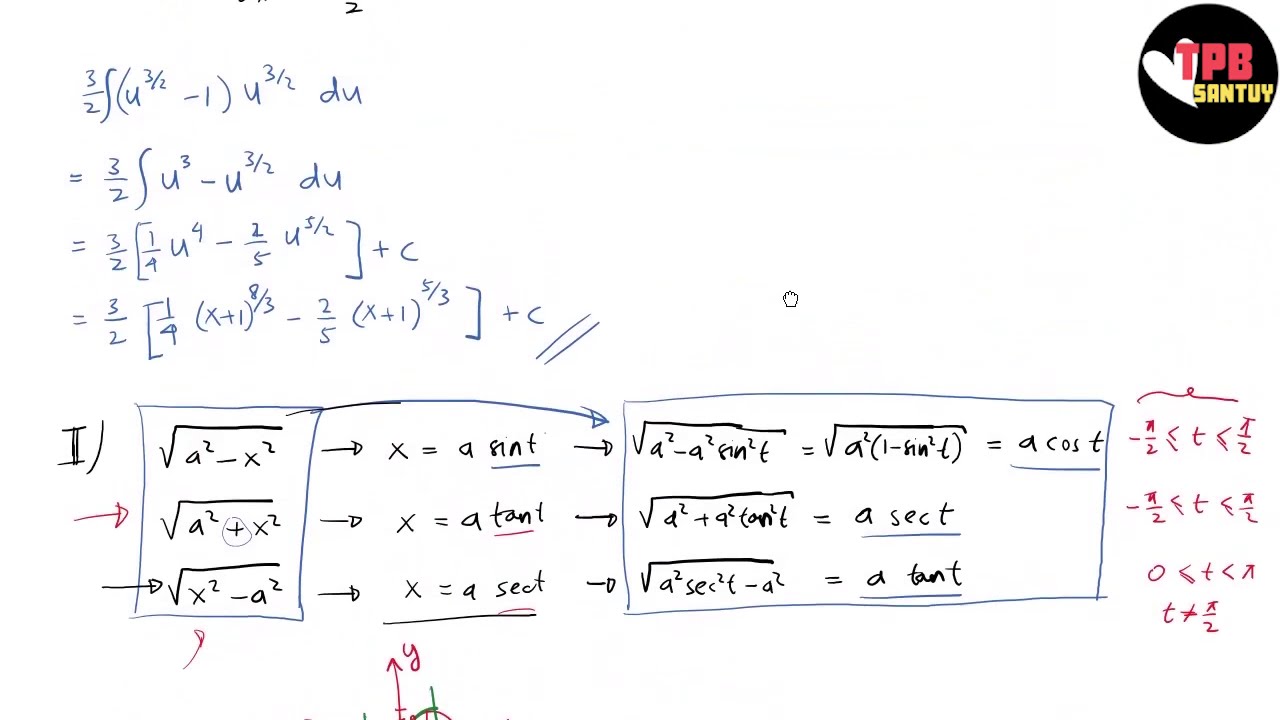 2
TPB
SANTUY
3/2 ∫(u^{3/2} - 1) u^{3/2} du
= 3/2 ∫ u^3 - u^{3/2} du
= 3/2 [1/4 u^4 - 2/5 u^{5/2}] + c
= 3/2 [1/4 (x+1)^{8/3} - 2/5 (x+1)^{5/3}] + c
II) √(a² - x²) → x = a sin t → √(a² - a² sin² t) = √(a²(1 - sin² t)) = a cos t -π/2 ≤ t ≤ π/2
→ √(a² + x²) → x = a tan t → √(a² + a² tan² t) = a sec t -π/2 ≤ t ≤ π/2
→ √(x² - a²) → x = a sec t → √(a² sec² t - a²) = a tan t 0 ≤ t < π
t ≠ π/2
y